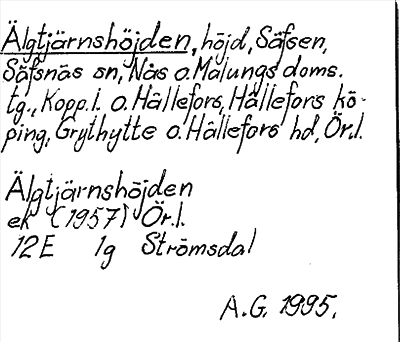 Älgtjärnshöjden, höjd, Säfsen,
Säfsnäs sn, Nås o. Malungs doms.
tg., Kopp.l. o. Hällefors, Hällefors kö-
ping, Grythytte o. Hällefors hd, Ör.l.
Älgtjärnshöjden
ek (1957) Ör.l.
12E 1g Strömsdal
A.G. 1995.